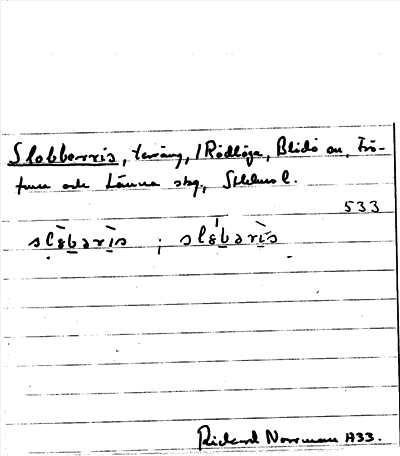 Slabberris, terräng, i Rödlöga, Blidö sn, Frö-
tuna och Länna skg, Sthlms l.
533
slɛ̀bərìs ; slɛ́bərìs
Rickard Norrman 1933.